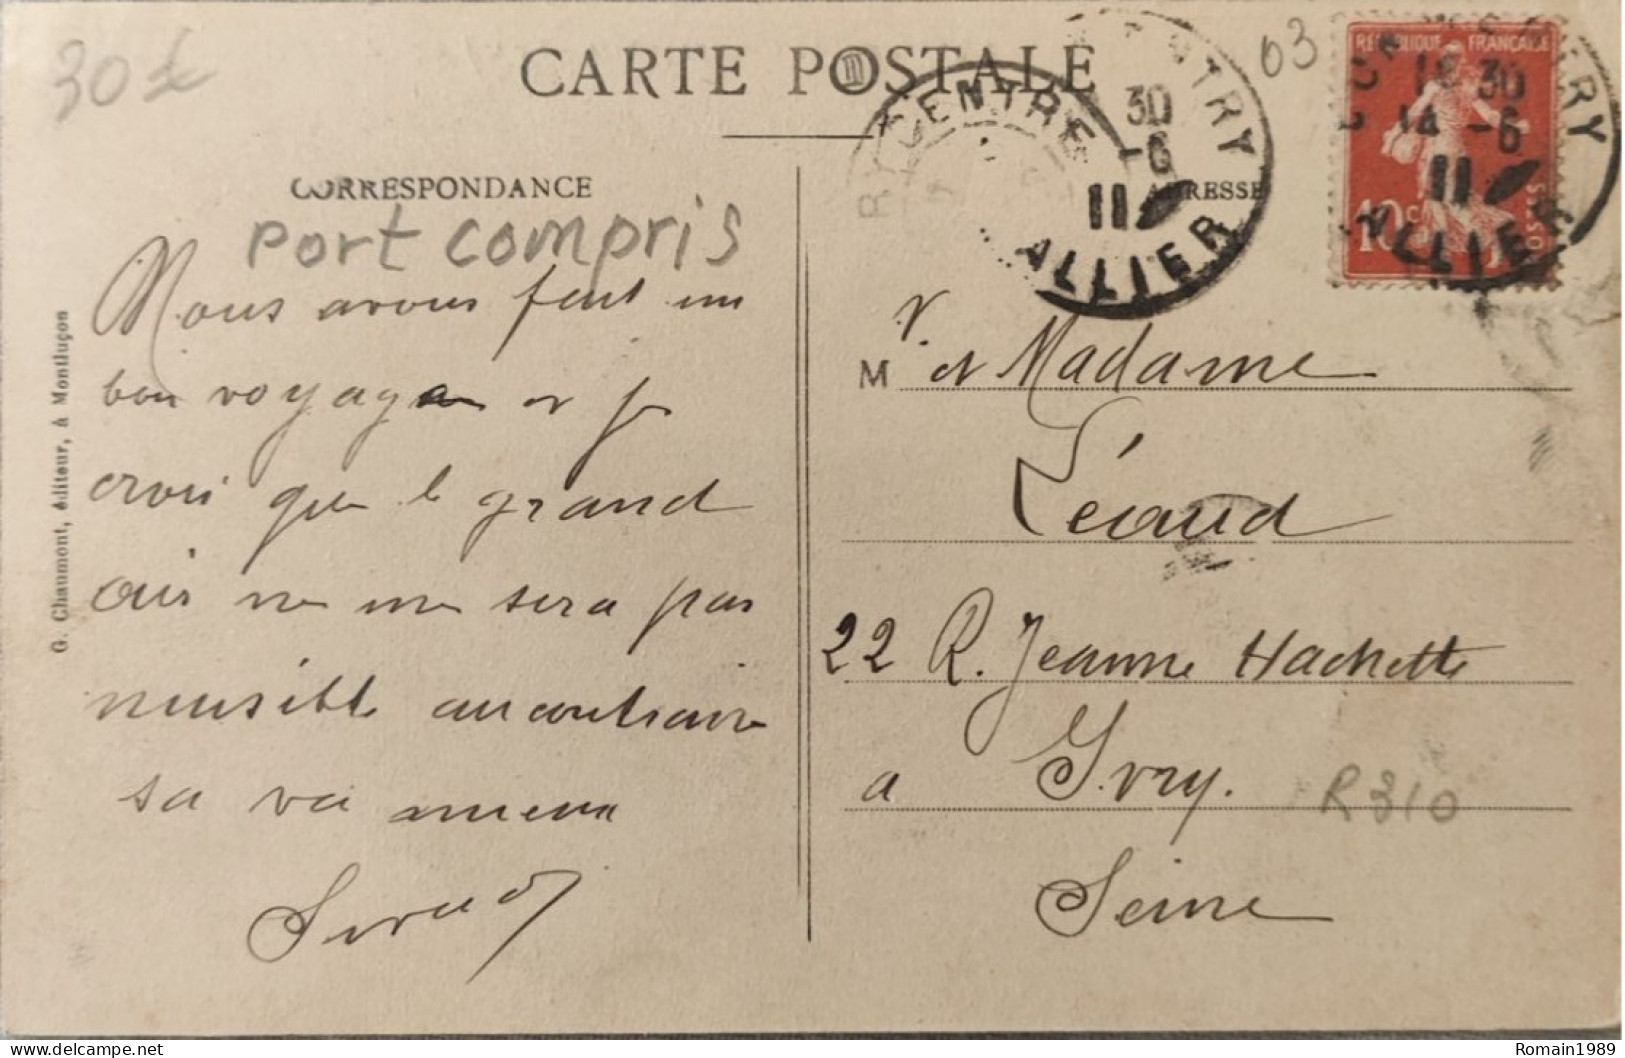 30 €
CARTE POSTALE
03
REPUBLIQUE FRANÇAISE
10 c.
POSTES
18 30
14 -6
11
ALLIER
CENTRE
TRY
30
-6
11
ALLIER
CORRESPONDANCE
ADRESSE
port compris
Nous avons fait un
bon voyage et je
crois que le grand
air ne me sera pas
nuisible au contraire
sa va mieux
G. Chaumont, éditeur, à Montluçon
M r. et Madame
Léaud
22 R. Jeanne Hachette
a Ivry.
R310
Seine
Romain1989